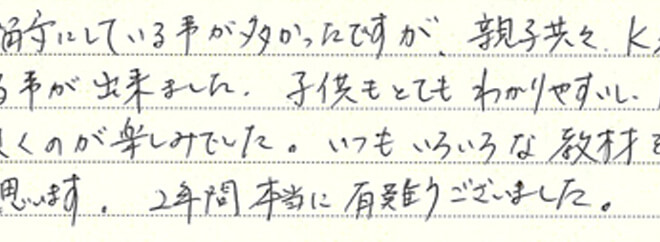 留守にしている事が多かったですが、親子共々、K
る事が出来ました。子供もとてもわかりやすいし、
くのが楽しみでした。いつもいろいろな教材を
思います。2年間本当に有難うございました。